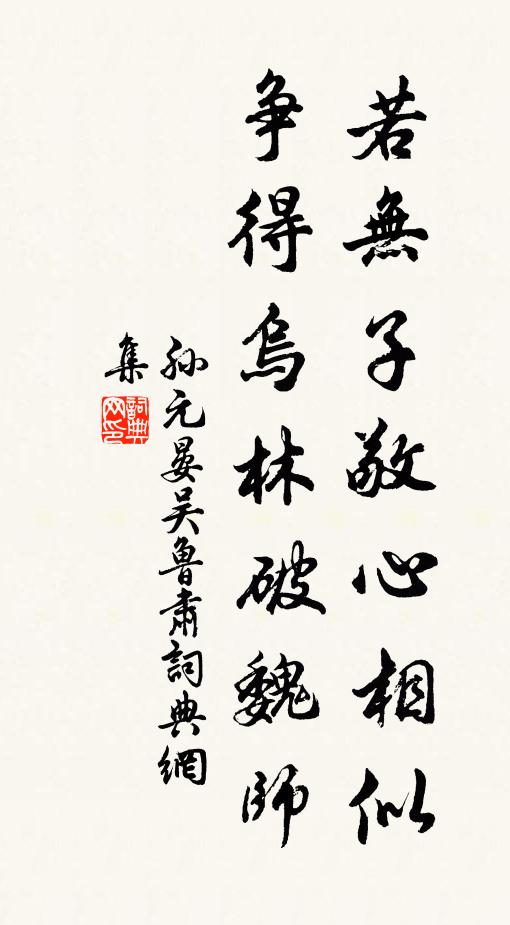 若無子敬心相似
争得烏林破魏師
孙元晏吴魯肅詞典網
集
詞典网印